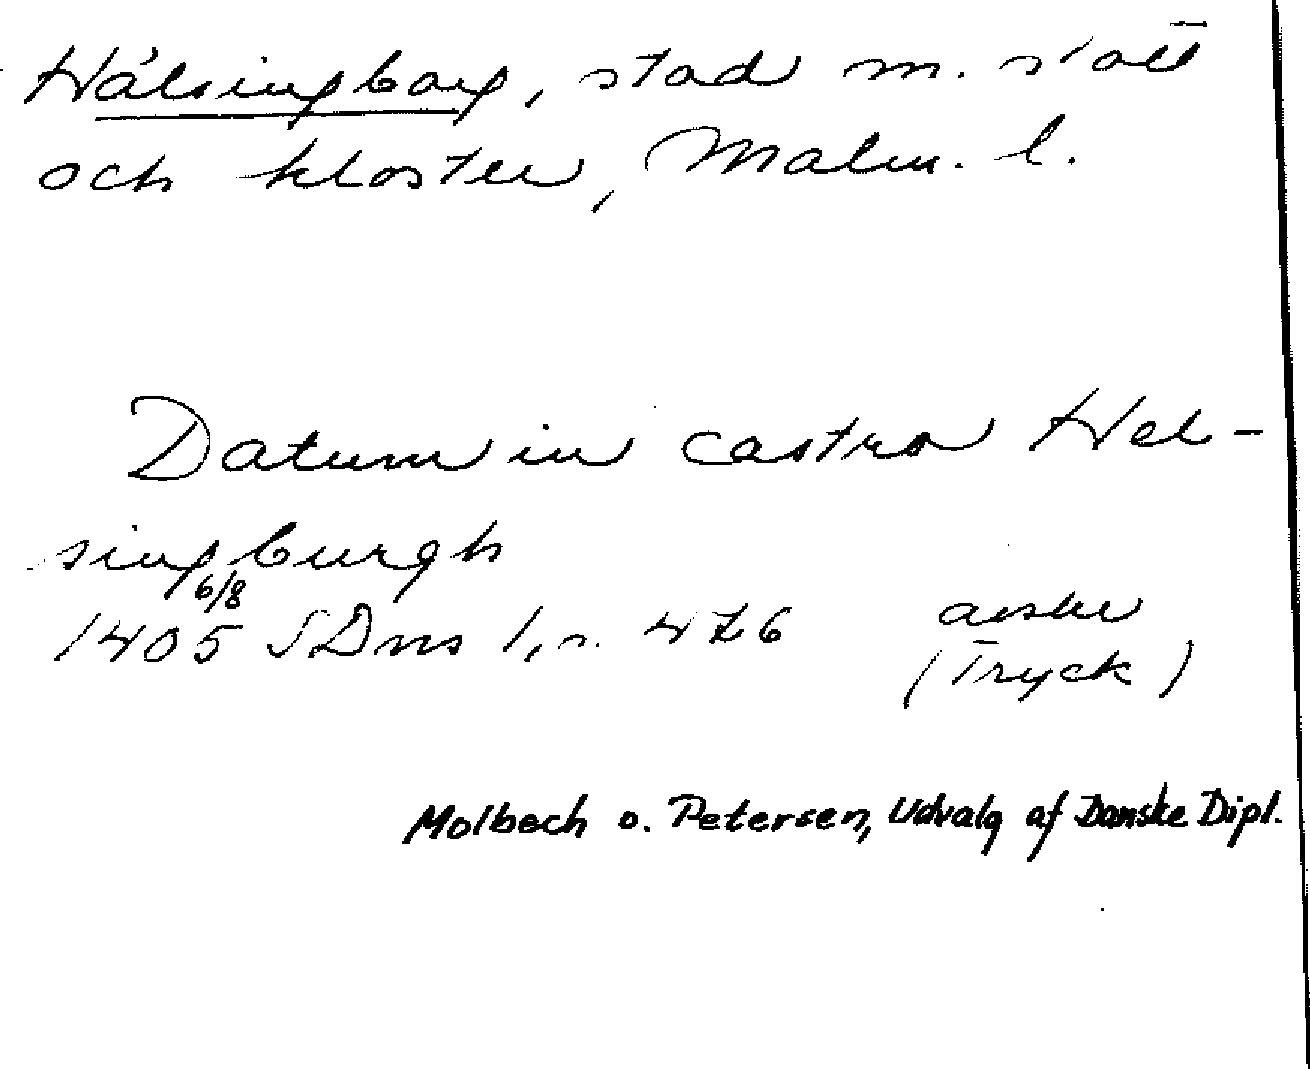 Hälsingborg, stad m. slott
och kloster, Malm. l.
Datum in castro Hel-
singburgh
6/8
1405 SDns 1, n. 476
avskr
(Tryck)
Molbech o. Petersen, Udvalg af Danske Dipl.